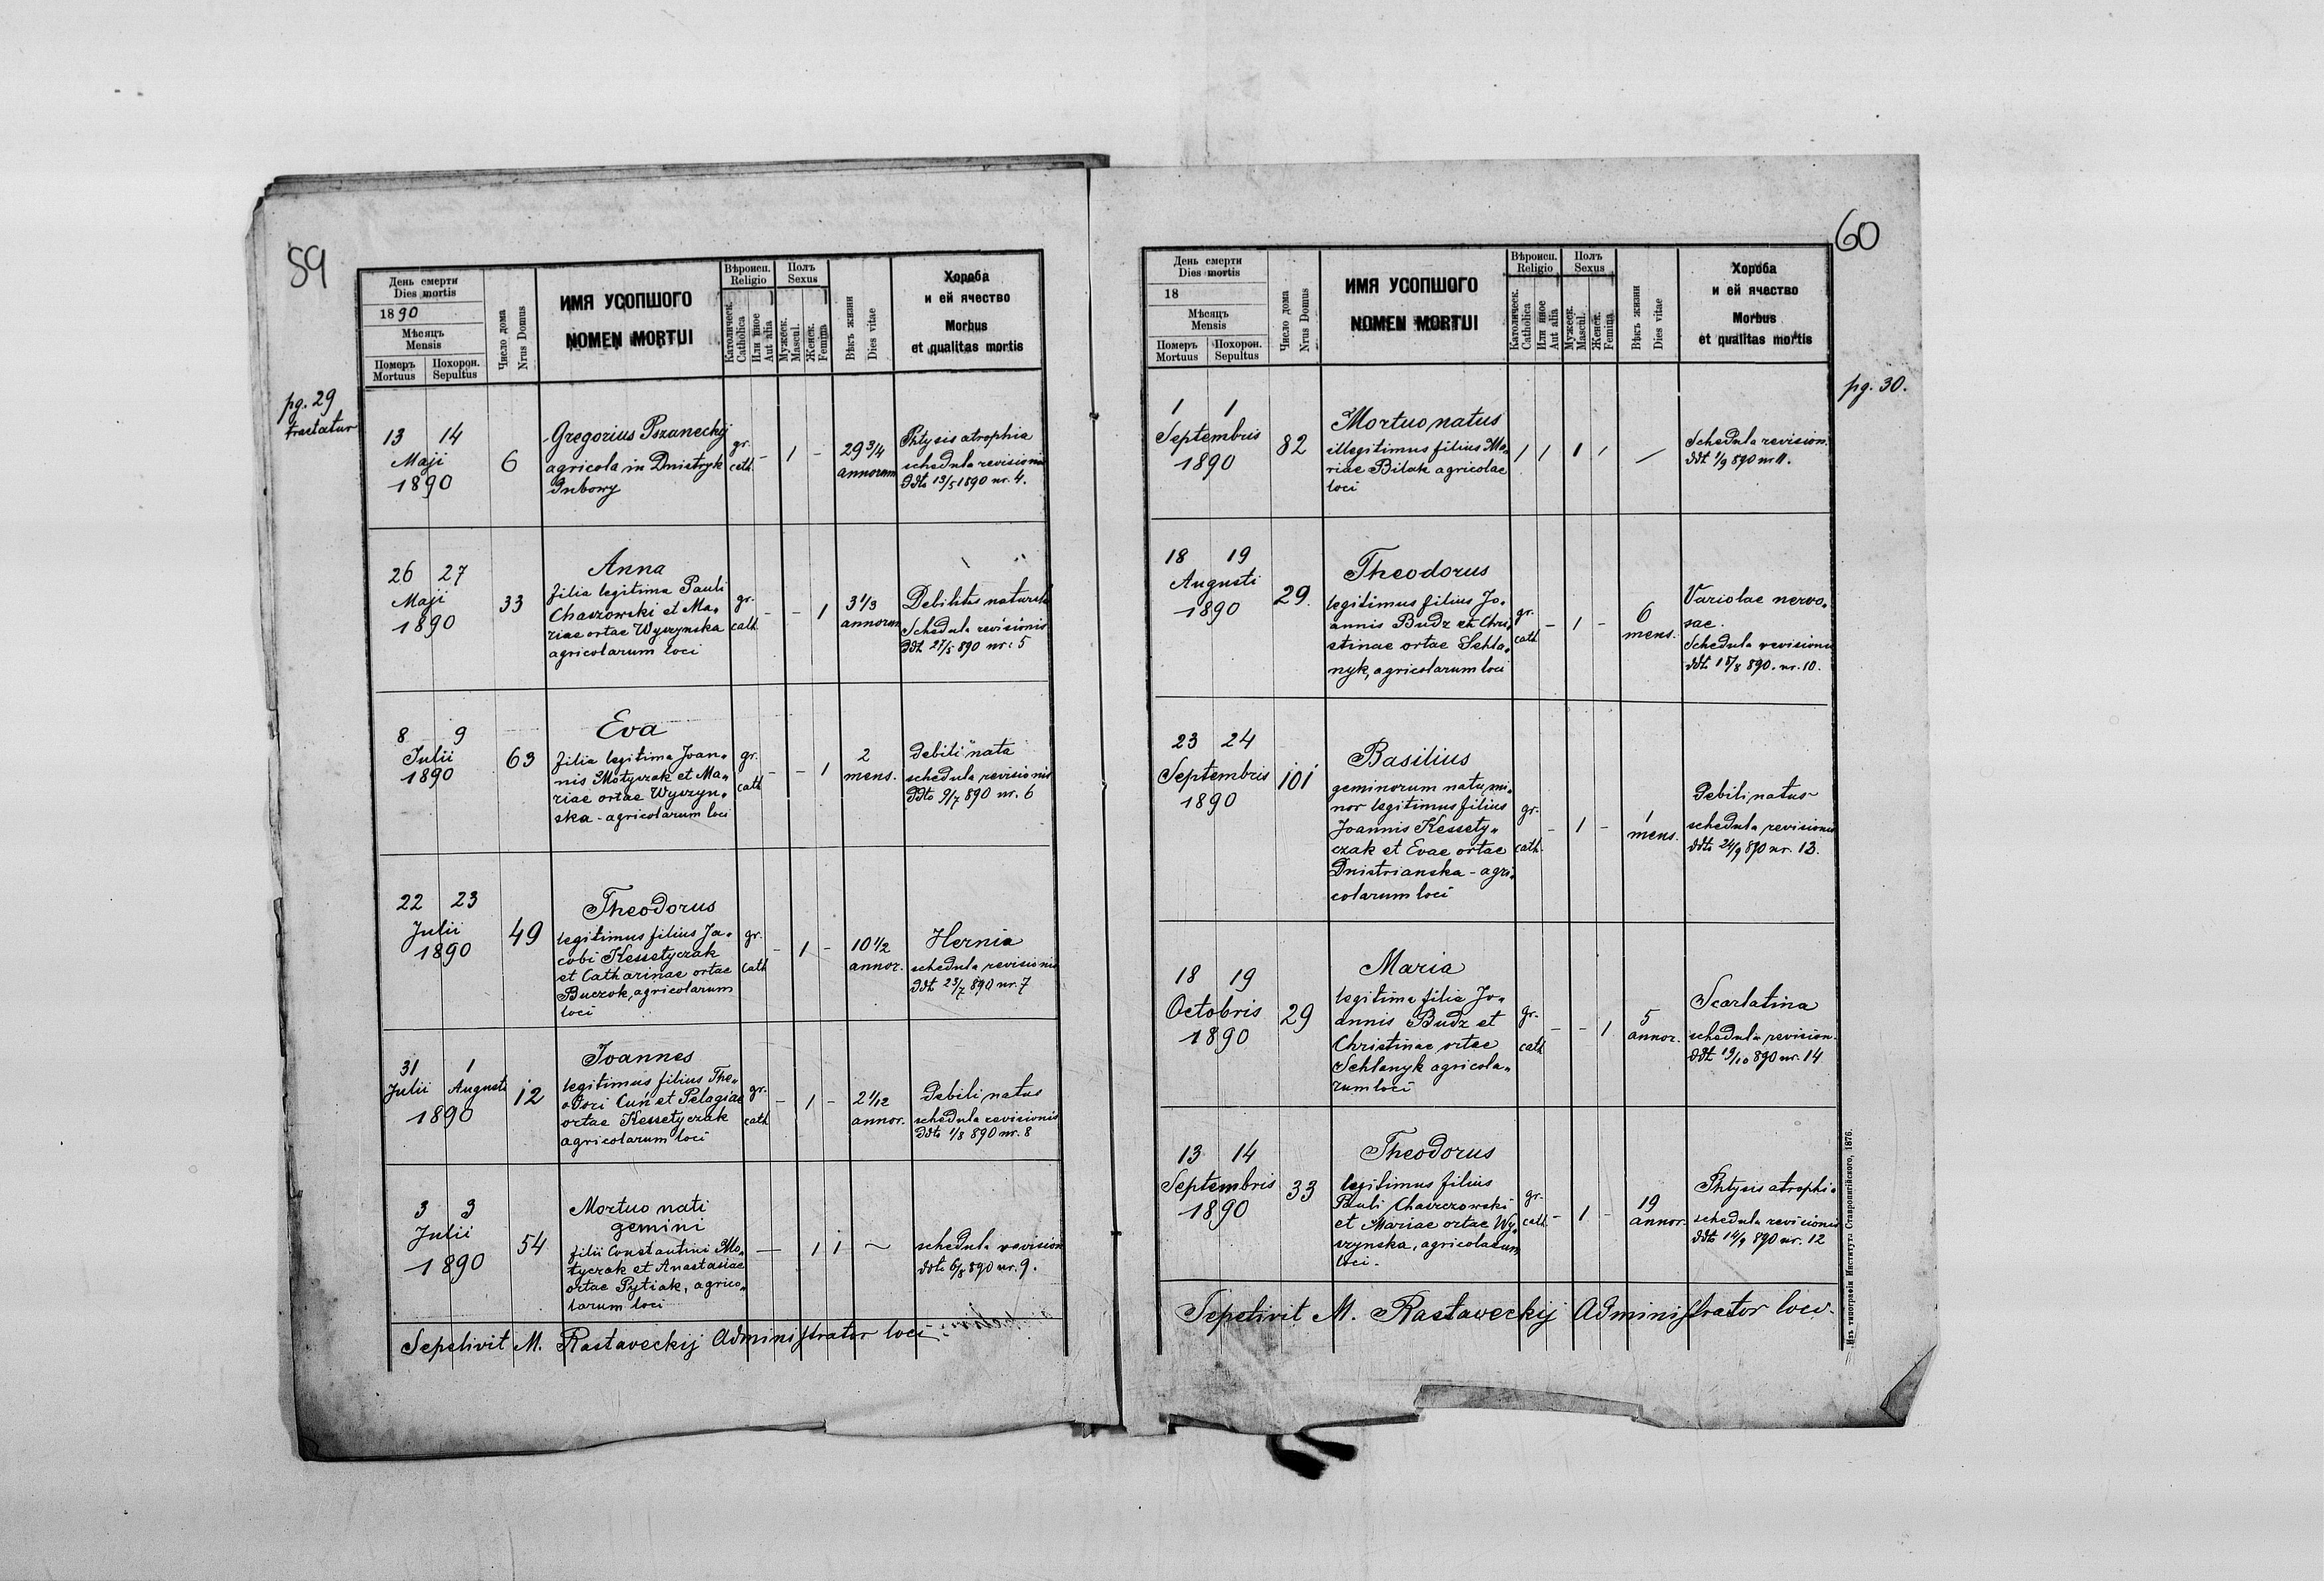 59
День смерти
Dies mortis
1890
Мѣсяцъ
Mensis
Померъ Похорон.
Mortuus Sepultus
Число дома
Nrus Domus
ИМЯ УСОПШОГО
NOMEN MORTUI
Вѣроисп.
Religio
Католическ.
Catholica
Или иное
Aut alia
Полъ
Sexus
Мужеск.
Mascul.
Женск.
Femina
Вѣкъ жизни
Dies vitae
Хороба
и ей ячество
Morbus
et qualitas mortis
pg. 29
13 14
Maji
1890
6
Gregorius Pszaneckij
agricola in Dnistryk
Dubowy
gr.
cath.
- 1 -
29 3/4
annorum
Phtysis atrophia
schedula revisionis
ddto 13/5 1890 nr. 4.
26 27
Maji
1890
33
Anna
filia legitima Pauli
Charzowski et Ma„
riae ortae Wyrzynska
agricolarum loci
gr.
cath.
- - 1
3 1/3
annorum
Debilitas
Schedula revisionis
ddt 27/5 890 nr. 5
8 9
Julii
1890
63
Eva
filia legitima Joan„
nis Motyczak et Ma„
riae ortae Wyrzyn„
ska - agricolarum loci
gr.
cath
- - 1
2
mens.
Debili nata
schedula revisionis
ddto 9/7 890 nr. 6
22 23
Julii
1890
49
Theodorus
legitimus filius Ja„
cobi Kessetyczak
et Catharinae ortae
Buczok, agricolarum
loci
gr.
cath
- 1 -
10 1/2
annor.
Hernia
schedula revisionis
ddt 23/7 890 nr. 7
31 1
Julii Augusti
1890
12
Joannes
legitimus filius The„
odori Cuń et Pelagiae
ortae Kessetyczak
agricolarum loci
gr.
cath
- 1 -
2 1/12
annor.
Debili natus
schedula revisionis
ddto 1/8 890 nr. 8
3 3
Julii
1890
54
Mortuo nati
gemini
filii Constantini Mo„
tyczak et Anastasiae
ortae Pytiak, agrico„
larum loci
— 1 1 ~
schedula revision
ddto 6/8 890 nr. 9.
Sepelivit M. Rastaveckij Administrator loci
60
День смерти
Dies mortis
18
Мѣсяцъ
Mensis
Померъ Похорон.
Mortuus Sepultus
Число дома
Nrus Domus
ИМЯ УСОПШОГО
NOMEN MORTUI
Вѣроисп.
Religio
Католическ.
Catholica
Или иное
Aut alia
Полъ
Sexus
Мужеск.
Mascul.
Женск.
Femina
Вѣкъ жизни
Dies vitae
Хороба
и ей ячество
Morbus
et qualitas mortis
pg. 30.
1 1
Septembris
1890
82
Mortuo natus
illegitimus filius Ma„
riae Bilak agricolae
loci
Schedula revision.
ddt 1/9 890 nr 11.
18 19
Augusti
1890
29.
Theodorus
legitimus filius Jo„
annis Budz et Chri„
stinae ortae Schla„
nyk, agricolarum loci
gr.
cath
- 1 -
6
mens.
Variolae nervo„
sae.
Schedula revisionis
ddto 18/8 890. nr. 10.
23 24
Septembris
1890
101
Basilius
geminorum natu mi„
nor legitimus filius
Joannis Kessety„
czak et Evae ortae
Dnistrianska - agri„
colarum loci
gr.
cath.
- 1 -
1
mens.
Debili natus
schedula revisionis
ddto 24/9 890 nr. 13.
18 19
Octobris
1890
29
Maria
legitima filia Jo„
annis Budz et
Christinae ortae
Schlanyk agricola„
rum loci
gr.
cath
- - 1
5
annor.
Scarlatina
schedula revision.
ddt 19/10 890 nr. 14
13 14
Septembris
1890
33
Theodorus
legitimus filius
Pauli Charczowski
et Mariae ortae Wy„
rzynska, agricolarum
loci.
gr.
cath.
- 1 -
19
annor.
Phtysis atrophi.
schedula revisionis
ddto 14/9 890 nr. 12
Sepelivit M. Rastaweckij Administrator loci.
Изъ типографіи Института Ставропигійского, 1876.